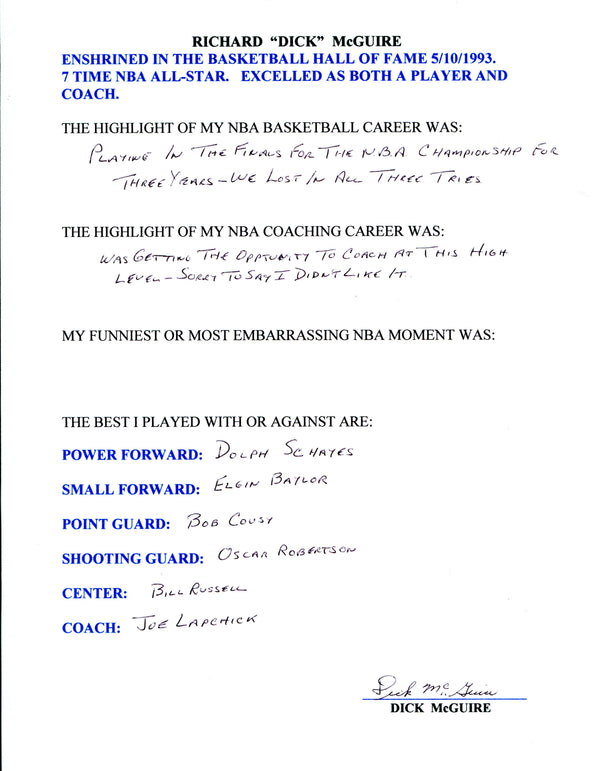 RICHARD “DICK” McGUIRE
ENSHRINED IN THE BASKETBALL HALL OF FAME 5/10/1993.
7 TIME NBA ALL-STAR. EXCELLED AS BOTH A PLAYER AND
COACH.
THE HIGHLIGHT OF MY NBA BASKETBALL CAREER WAS:
PLAYING IN THE FINALS FOR THE N.B.A CHAMPIONSHIP FOR
THREE YEARS - WE LOST IN ALL THREE TRIES
THE HIGHLIGHT OF MY NBA COACHING CAREER WAS:
WAS GETTING THE OPPTUNITY TO COACH AT THIS HIGH
LEVEL - SORRY TO SAY I DIDN'T LIKE IT.
MY FUNNIEST OR MOST EMBARRASSING NBA MOMENT WAS:
THE BEST I PLAYED WITH OR AGAINST ARE:
POWER FORWARD: DOLPH SCHAYES
SMALL FORWARD: ELGIN BAYLOR
POINT GUARD: BOB COUSY
SHOOTING GUARD: OSCAR ROBERTSON
CENTER: BILL RUSSELL
COACH: JOE LAPCHICK
Dick McGuire
DICK McGUIRE